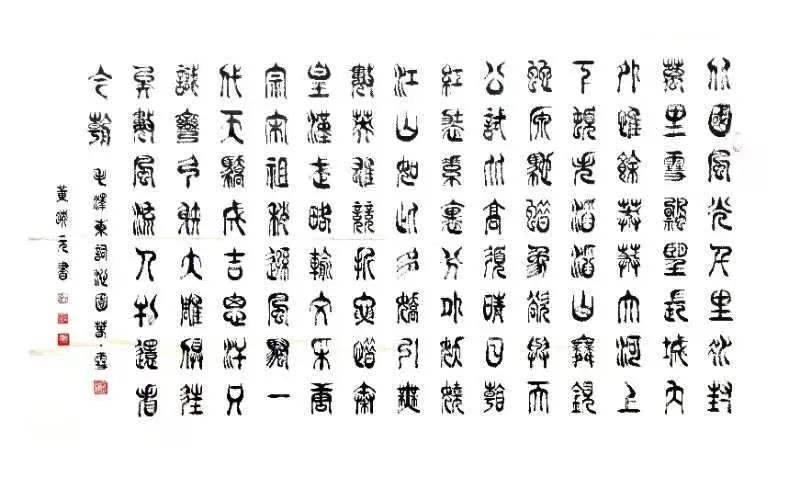 北國風光千里冰封
萬里雪飄望長城內
外惟餘莽莽大河上
下頓失滔滔山舞銀
蛇原馳蠟象欲與天
公試比高須晴日看
紅裝素裹分外妖嬈
江山如此多嬌引無
數英雄競折腰惜秦
皇漢武略輸文采唐
宗宋祖稍遜風騷一
代天驕成吉思汗只
識彎弓射大雕俱往
矣數風流人物還看
今朝
毛澤東詞沁園春·雪
黃元書